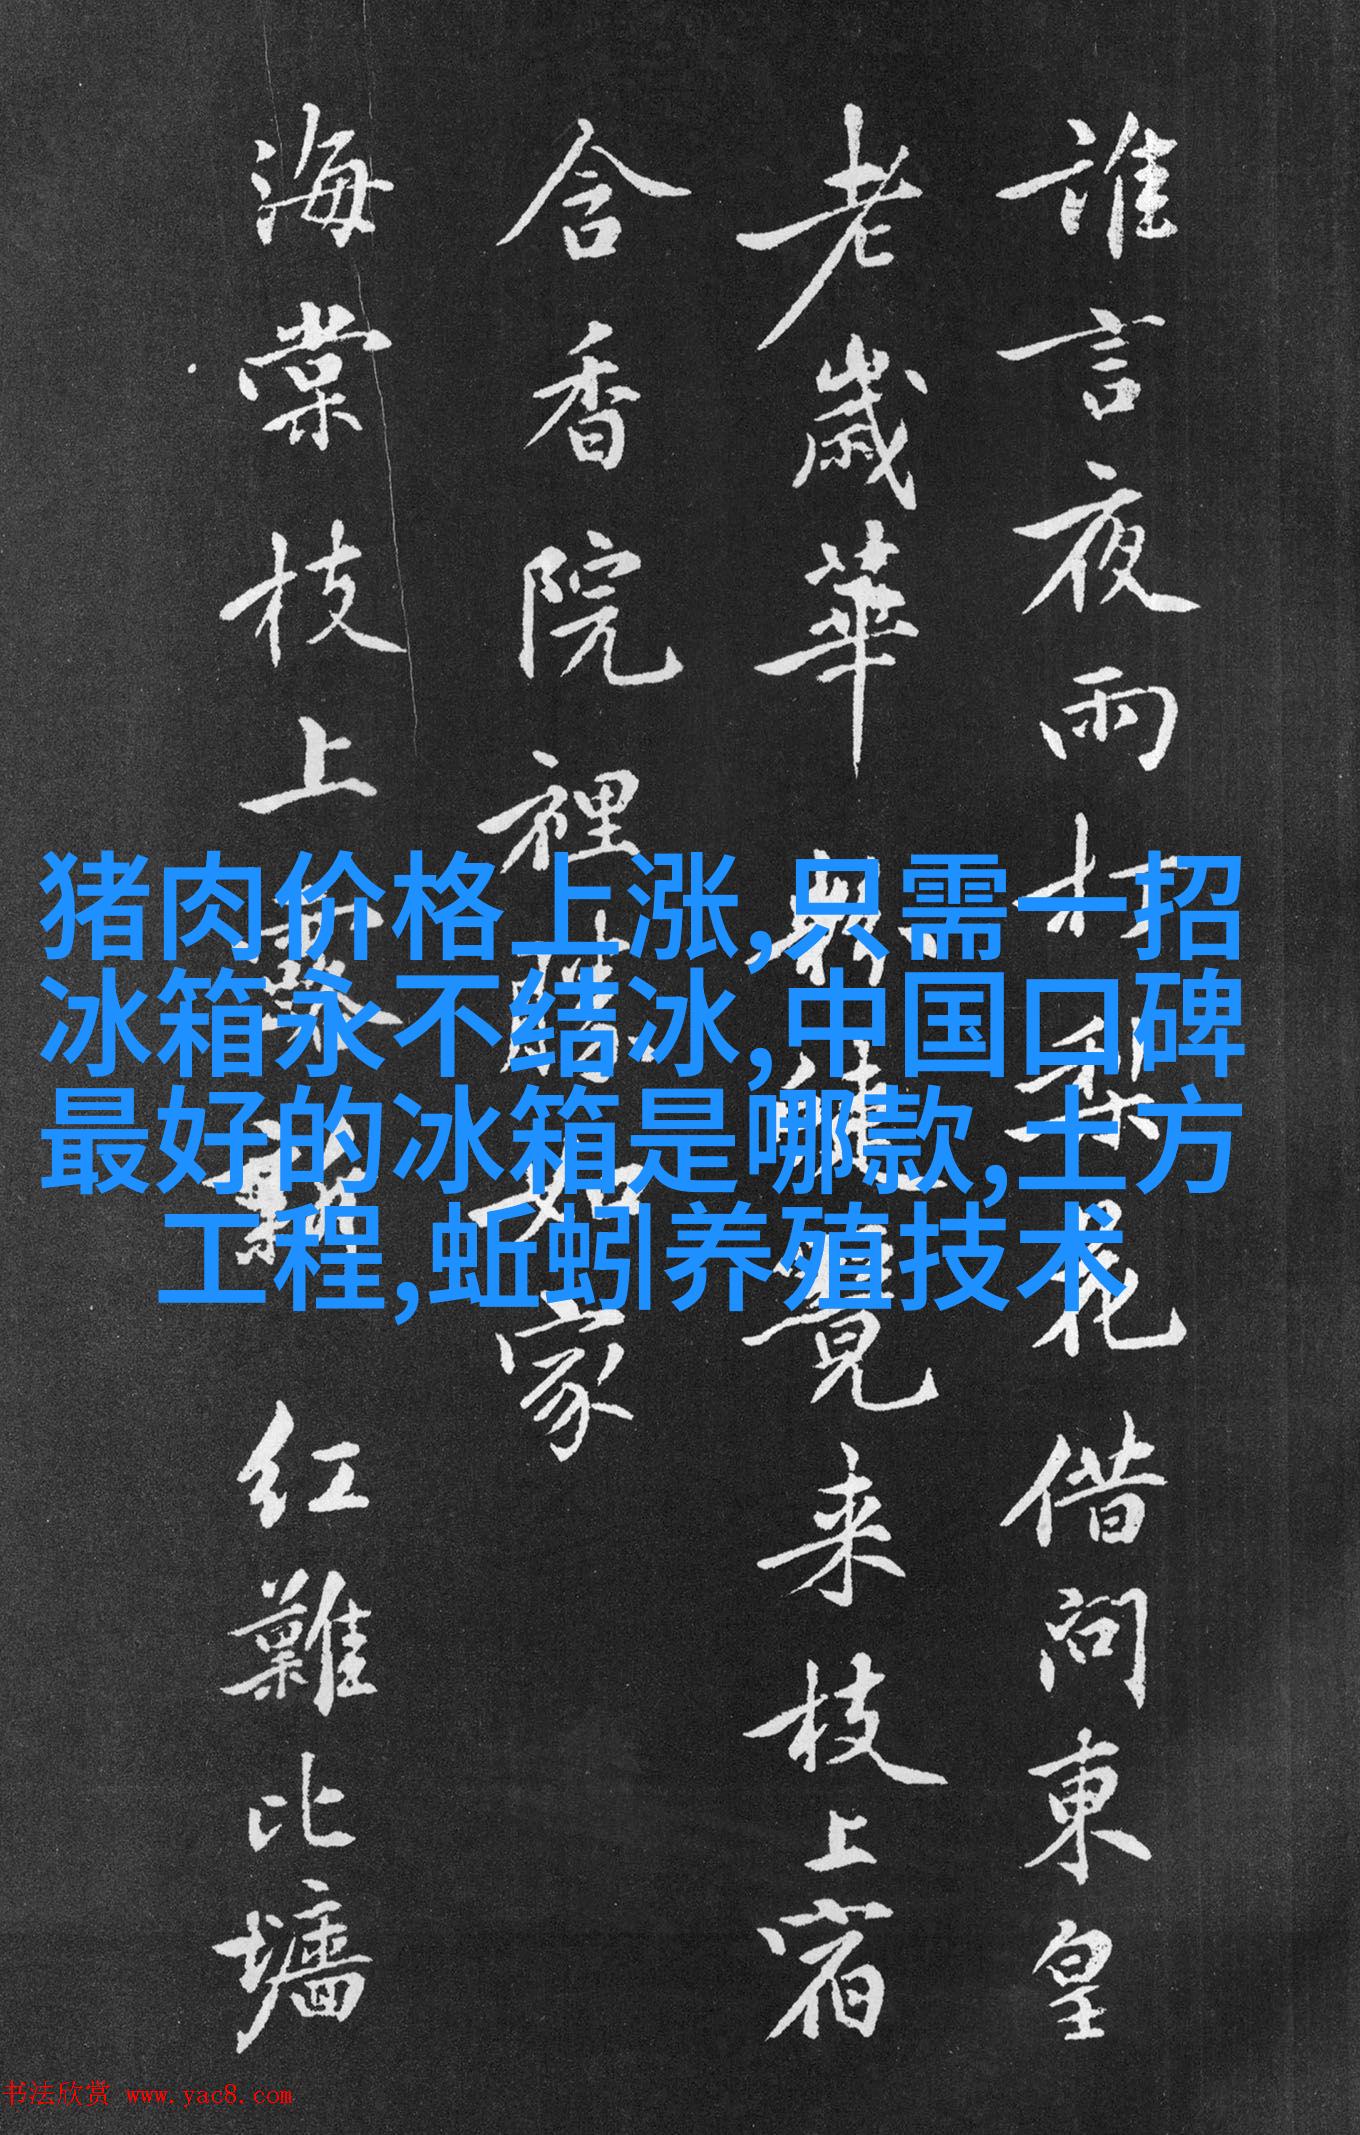 誰言夜雨打梨花借問東皇
老歲華覺来枝上宿
含香院裡勝如家
海棠枝上红難比墻
猪肉价格上涨,只需一招
冰箱永不结冰,中国口碑
最好的冰箱是哪款,土方
工程,蚯蚓养殖技术
书法欣赏 www.yac8.com